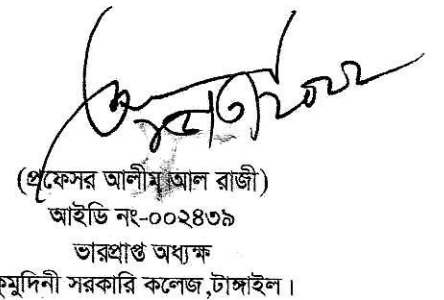 (প্রফেসর আলীম আল রাজী)
আইডি নং-০০২৪৩৯
ভারপ্রাপ্ত অধ্যক্ষ
কুমুদিনী সরকারি কলেজ,টাঙ্গাইল।